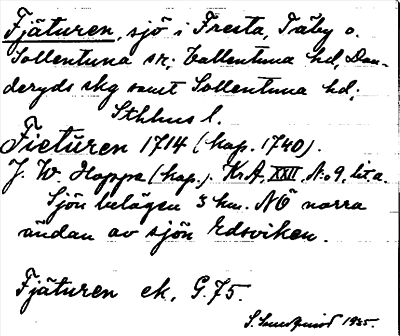 Fjäturen, sjö i Fresta, Täby o.
Sollentuna sn; Vallentuna hd, Dan-
deryds skg samt Sollentuna hd;
Sthlms l.
Fieturen 1714 (kop. 1740).
J. W. Hoppe (kop.). Kr.A, XXII, N:o 9, lit a.
Sjön belägen 3 km. NÖ norra
ändan av sjön Edsviken.
Fjäturen ek. G.75.
1935.